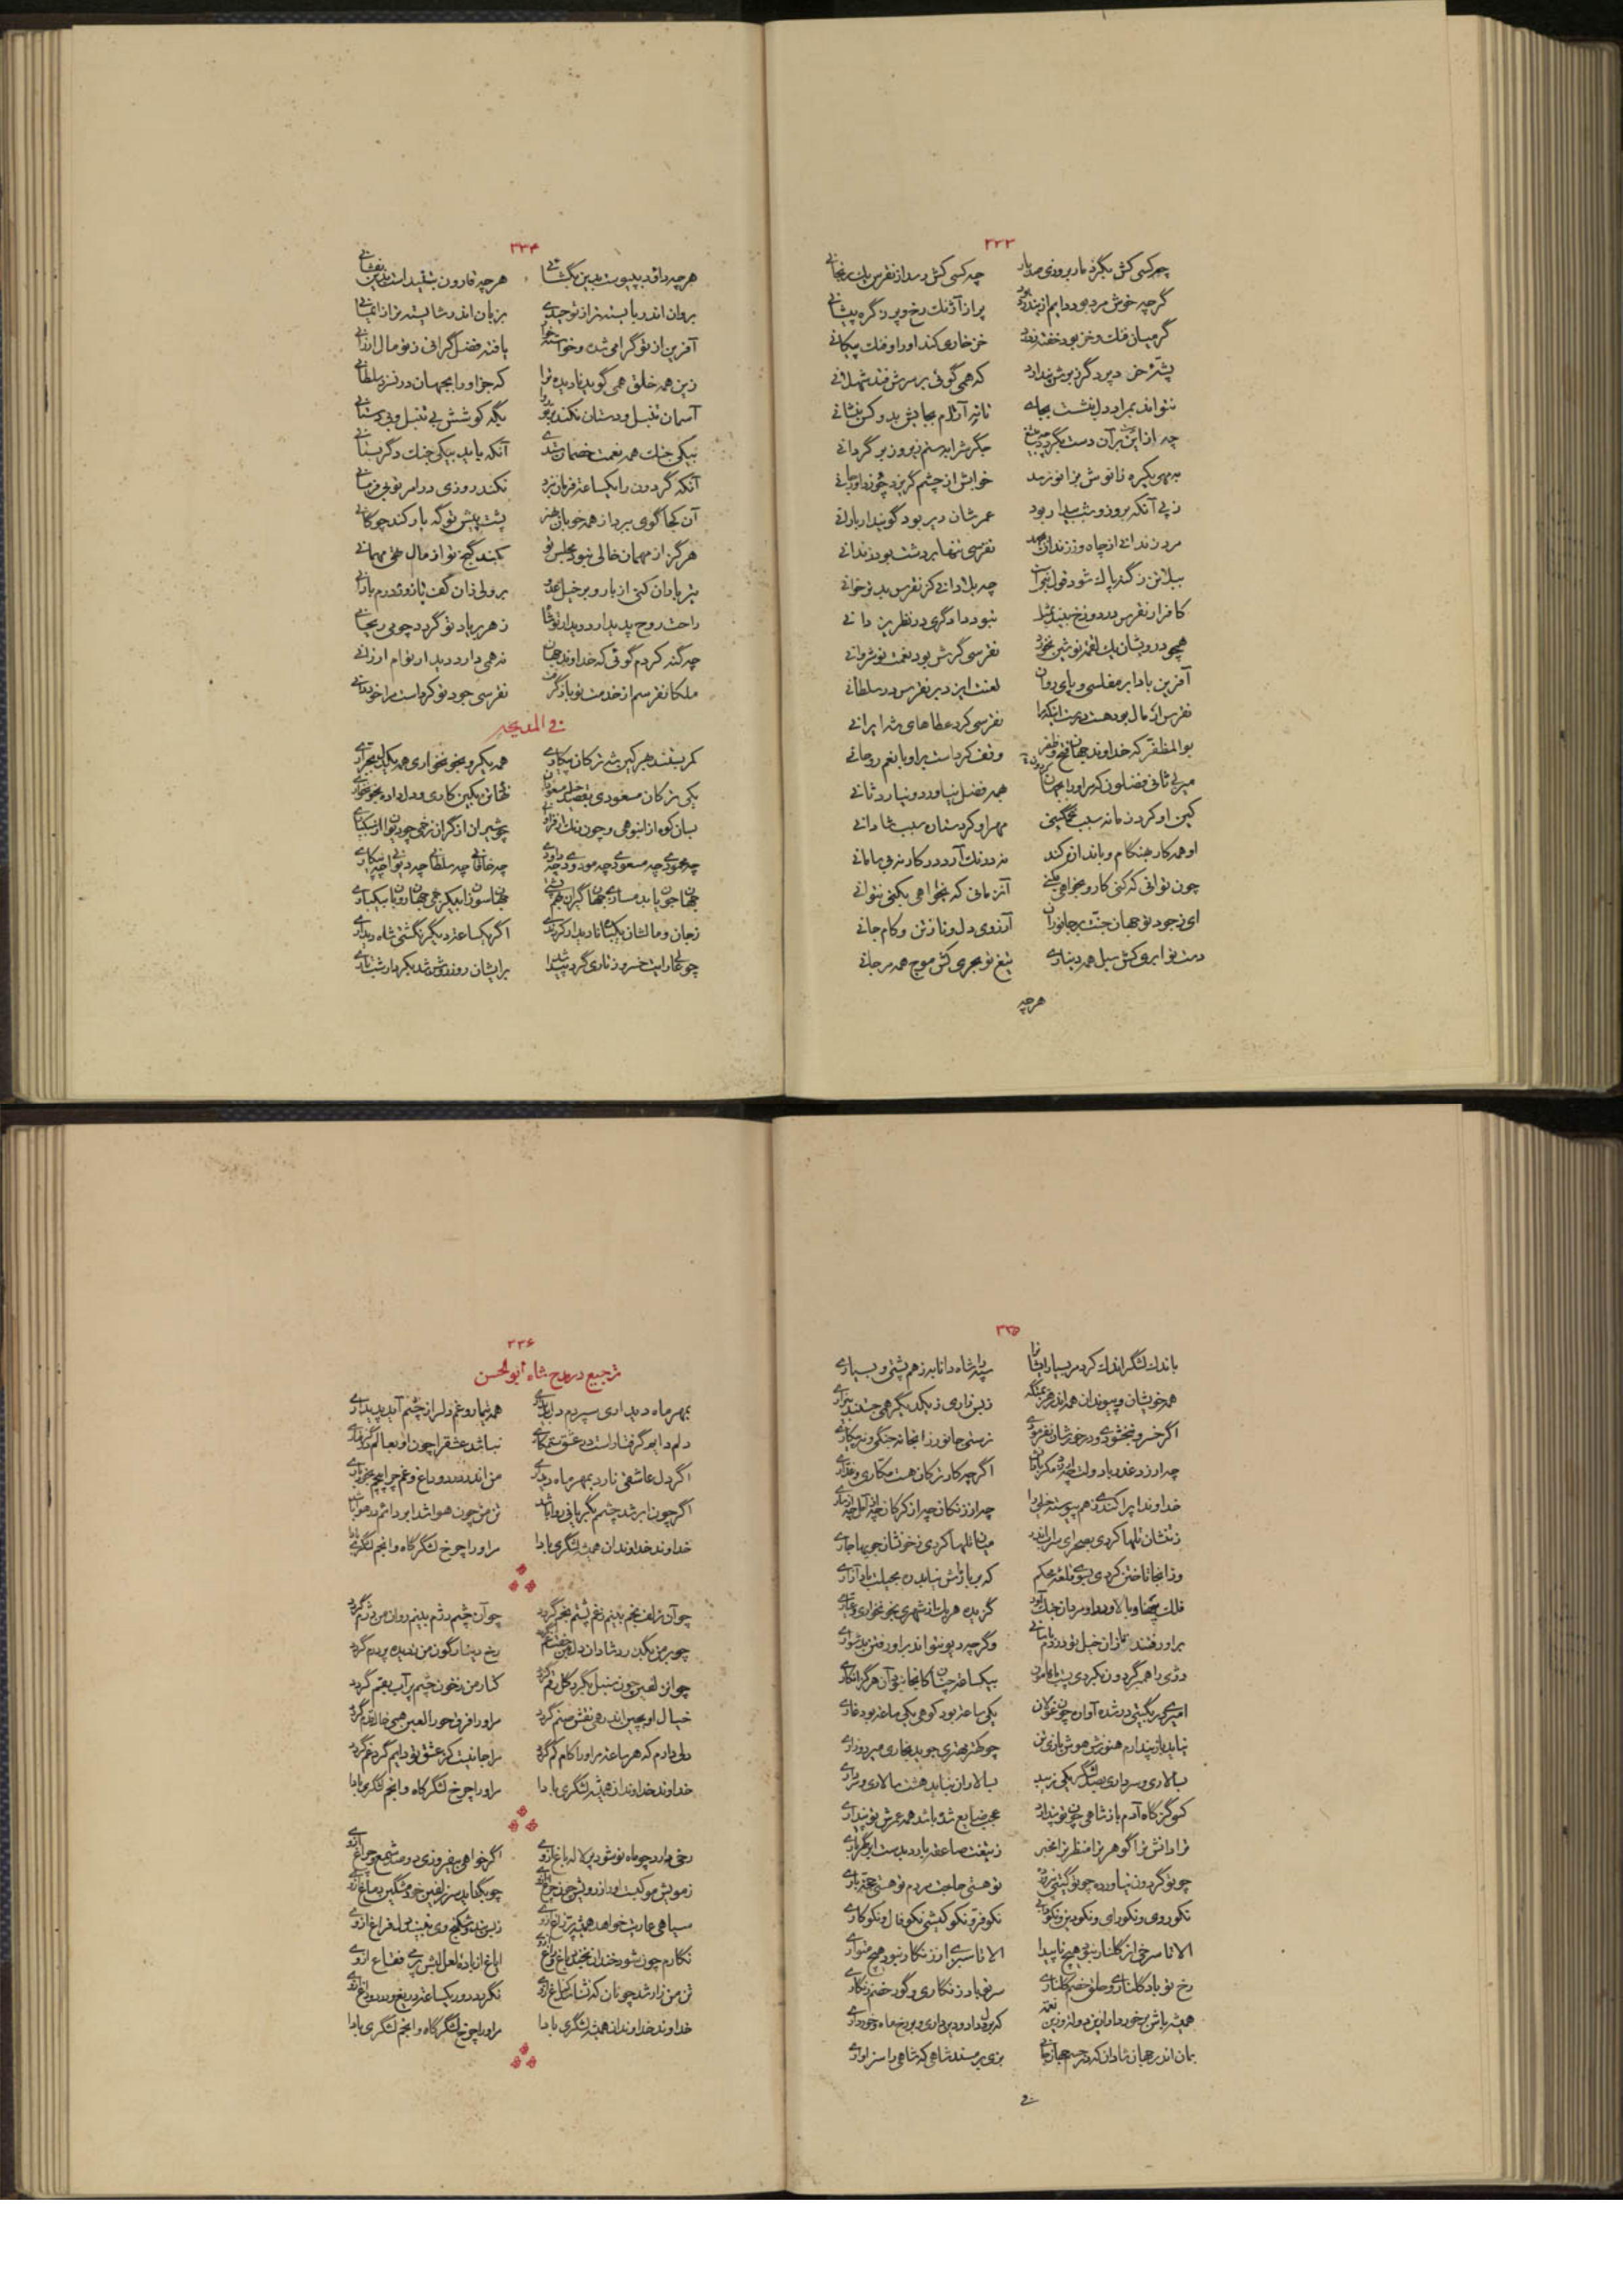 ۳۳۳
چه کسی کش بگزد مار بروزی صد بار چه کسی کش رسد از نقرس یک رنجانی
گرچه خوش مرد بود دایم از پر از آژنگ رخ و پر ز گره پیشانی
گر میان فنک و خز بود خفته خز خاری کند او را و فنک پیکانی
پشه خر که همی گوئی بر سرش فتد شهلانی
نتواند بمراد دل بنشست بجای تا نه آرام بجایش بدو کس بنشانی
چه از این بر آن دست بگردد جگرش را بستم زیر و زبر گردانی
خوابش از چشم گریزد چو
ز پی آنکه بروز و شب بیدار بود عمرشان دیر بود گو بیدار
مرد زندانی از چاه و ز زندان نقرسی تنها بر دشت بود زندانی
کافر از نقرس در دوزخ نبود دادگری در نظر یزدانی
همچو درویشان یک لقمه نوشین نخورد نقرسی گرش بود نعمت نوشروانی
آفرین بادا بر مفلسی و پای روان لعنت ایزد بر نقرس و بر سلطانی
نقرس از مال بود نقرسی کرد عطاهای شه ایرانی
بوالمظفر که خداوند جهان فتح و ظفر وقف کرد است بر او با نعم روحانی
میر بی ثانی فضلون که مر او را همه فضل نیاورد و نیارد ثانی
کین او کرد زمانه سبب غمگینی مهر او کرد ستاره سبب شادانی
او همه کار بهنگام و باندازه کند نه درنگ آرد در کار نه بی سامانی
چون توانی که کنی کار و نخواهی نکنی آنزمانی که نخواهی بکنی نتوانی
ای ز جود تو جهان جنت بر جانوران آرزوی دل و ناز تن و کام جانی
دست تو ابری کش سیل همه دیناری تیغ تو بحری کش موج همه مرجانی
هرچه
۳۳۴
هرچه داود بپیوست بدین بگشائی هرچه قارون بنهید است بدین بفشانی
بروان اندر بایسته‌تر از توحیدی بزبان اندر شایسته‌تر از ایمانی
آفرین از تو گرامی شده و خواسته خوار یافته فضل گرانی ز تو مال ارزانی
زین همه خلق همی گوید نادیده ترا که جز او را بجهان در نسزد سلطانی
آسمان تنبل و دستان نکند با تو گه کوشش بی تنبل و بی دستانی
بیکی جنگ همه نعمت خصمان آنکه یابد بیکی جنگ دگر بستانی
آنکه گردون را یکساعت فرمان نبرد نکند روزی در امر تو بی فرمانی
آن کجا گوی ببرد از همه خوبان بهنر پشت پیش تو گه بار کند چوگانی
هرگز از مهمان خالی نبود مجلس تو نکند گنج تو از مال مهمانی
تیرباران کنی از بارو بر خیل عدو بر ولی زان کف بازو درم بارانی
راحت روح پدیدار و دیدار تو زهر بر یاد تو گردد چو می ریحانی
چه گنه کردم گوئی که خداوند جهان نه همی دارد دیدار توام ارزانی
ملکا نقرسم از خدمت تو باز گرفت نقرسی جود تو کرد است مرا خود دانی
فی المدیحه
کمر بستند بهر کین شه ترکان پیکاری همه یکرو بخونخواری همه یکدل بجراری
یکی ترکان مسعودی بقصد خیل مسعودان نهان تن بکین کاری و دل داده بخونخواری
بسان کوه از انبوهی و چون ریگ از فراوانی چو شیران از گران زخمی چو دیوان از سبکساری
چه محمودی چه مسعودی چه مودودی چه داودی چه خاقانی چه سلطانی چه دیوانی چه پیکاری
جهانجویان بدمسازی جهانگیران بهم پشتی جهانسوزان بیکزخمی جهانرویان بیکباری
ز جان و مالشان یکتا نا بدیدار کردندی اگر یکساعت دیگر نگشتی شاه دیداری
چو عالی رایت خسرو ز تاری گرد پیدا شد بر ایشان روز روشن شد بکردار شب تاری
۳۳۵
باندک لشگر اندک کرد مر بسیار ایشانرا سپه را شاه دانا به ز هم پشتی و بسیاری
همه خویشان و پیوندان همه اندر هزیمتگه ز بس زاری ز یکدیگر همی جستند بیزاری
اگر خسرو نبخشودی و در خورشان نفرمودی نرستی جانور زانجا نه جنگی و نه پیکاری
چه ارزد غدر با دولت چه ارزد مکر با دانش اگرچه کار ترکان هست مکاری و غداری
خداوندا پراکندی ز هم پیوسته خیلی را چه از ترکان چه از کرکان چه از گیلی چه از دیلی
ز تنشان تلها کردی بصحرای سراب اندر میان تلها کردی ز خونشان جویها جاری
وزانجا تاختن کردی بسوی قلعه محکم که بر بارش نیاید ره بحیلت باد آزاری
فلک پهنا و بالا و درو او مردان جنگ آور گزیده هریک از شهری بخونخواری و عیاری
برادر نشاند گرچه دیو نتواند براو رفتن بدشواری
دزی را همبر گردون بکردی پست با هامون بیکساعت چنان کانجا نبوده آن هرگز انگاری
امیری همسر گیتی در شده آواره چون غولان یکی ساعت بود کوهی یکی ساعت بود غاری
نیاید باز پندارم هنوزش هوش با رنج تن چو کمتر بهتری جوید بخاری
بسالاری و سرداری بصد لشگر یکی نرسد بسالاران بباید هشت سالاری و سرداری
کسی گر گاه آدم باز شاهی چون تو پندارد همه ضایع شده باشد همه عمرش بپنداری
ترا دانش ترا گوهر ترا منظر ترا مخبر ز تیغت صاعقه بارد بدست ابر گهرباری
چو تو گردون نیاورده چو تو گیتی نپرورده تو هستی حاجت مردم تو هستی حجت باری
نکو روی و نکو رای و نکو دین و نکو نکو فر و نکو کیشی نکو فال و نکو کاری
الا تا سرخی از گلنار نبود هیچ ناپیدا الا تا سبزی از زنگار نبود هیچ متواری
رخ تو باد گلناری و حلق خصم گلناری سر تو باد زنگاری و گور خصم زنگاری
همیشه باش برخوردار از این دولت و زین نعمت که بر دل داد و دین داری و بر رخ ماه خور داری
بمان اندر جهان شادان که در جسم جهان جانی بزی بر مسند شاهی که شاهی را سزاواری
فی
۳۳۶
ترجیع در مدح شاه ابوالحسن
بمهر ماه دیداری سپردم دل بدیداری همه تیمار و غم دلرا ز چشم آید پدیداری
دلم دایم گرفتار است در عشق ستمکاری نباشد عشق را چون او بعالم در گرفتاری
اگر دل عاشقی نارد بمهر ماه دیداری من اندر درد و داغ و غم چرا پیچم بخرواری
اگر چون ابر شد چشمم بگریانی روا باشد تن من چون هوا شد ابر دائم در هوا باشد
خداوند خداوندان همیشه لشگری بادا مر او را چرخ لشگرگاه و انجم لشگری بادا
چو آن زلف بخم بینم ز غم پشتم بخم گردد چو آن چشم دژم بینم روان من دژم گردد
چو بر من بگذرد شادان دل من جفت غم گردد رخ دینارگون من ز دیده پر درم گردد
چو از لفین چون سنبل بگرد گل رقم گردد کنار من ز خون چشم پر آب بقم گردد
خیال او بچین اندر همی نقش صنم گردد مر او را فرق حورالعین همی خاک قدم گردد
دلی دارم که هر ساعت مر او را کام کم گردد مرا جانیست کز عشق بتی دایم گرد غم گردد
خداوند خداوندان همیشه لشگری بادا مر او را چرخ لشگرگاه و انجم لشگری بادا
رخی دارد چو ماه نو شود پر لاله باغ از وی اگر خواهی بیفروزی دو صد شمع و چراغ از وی
ز مویش مو کبست او را ز رویش جوز چراغ از وی چو بگشاید سر زلفین خود مشگین دماغ از وی
سیاهی عاریت خواهد همیشه پر زاغ از وی ز بس بند و شکنج وی نیابد دل فراغ از وی
نگارم چون شود خندان بخندد باغ و راغ از وی ایاغ از باده لعل لبش پر می ایاغ از وی
تن من زار شد چونان که نشناسد کناغ از وی نگردد دور یکساعت دریغ و درد و داغ از وی
خداوند خداوندان همیشه لشگری بادا مر او را چرخ لشگرگاه و انجم لشگری بادا